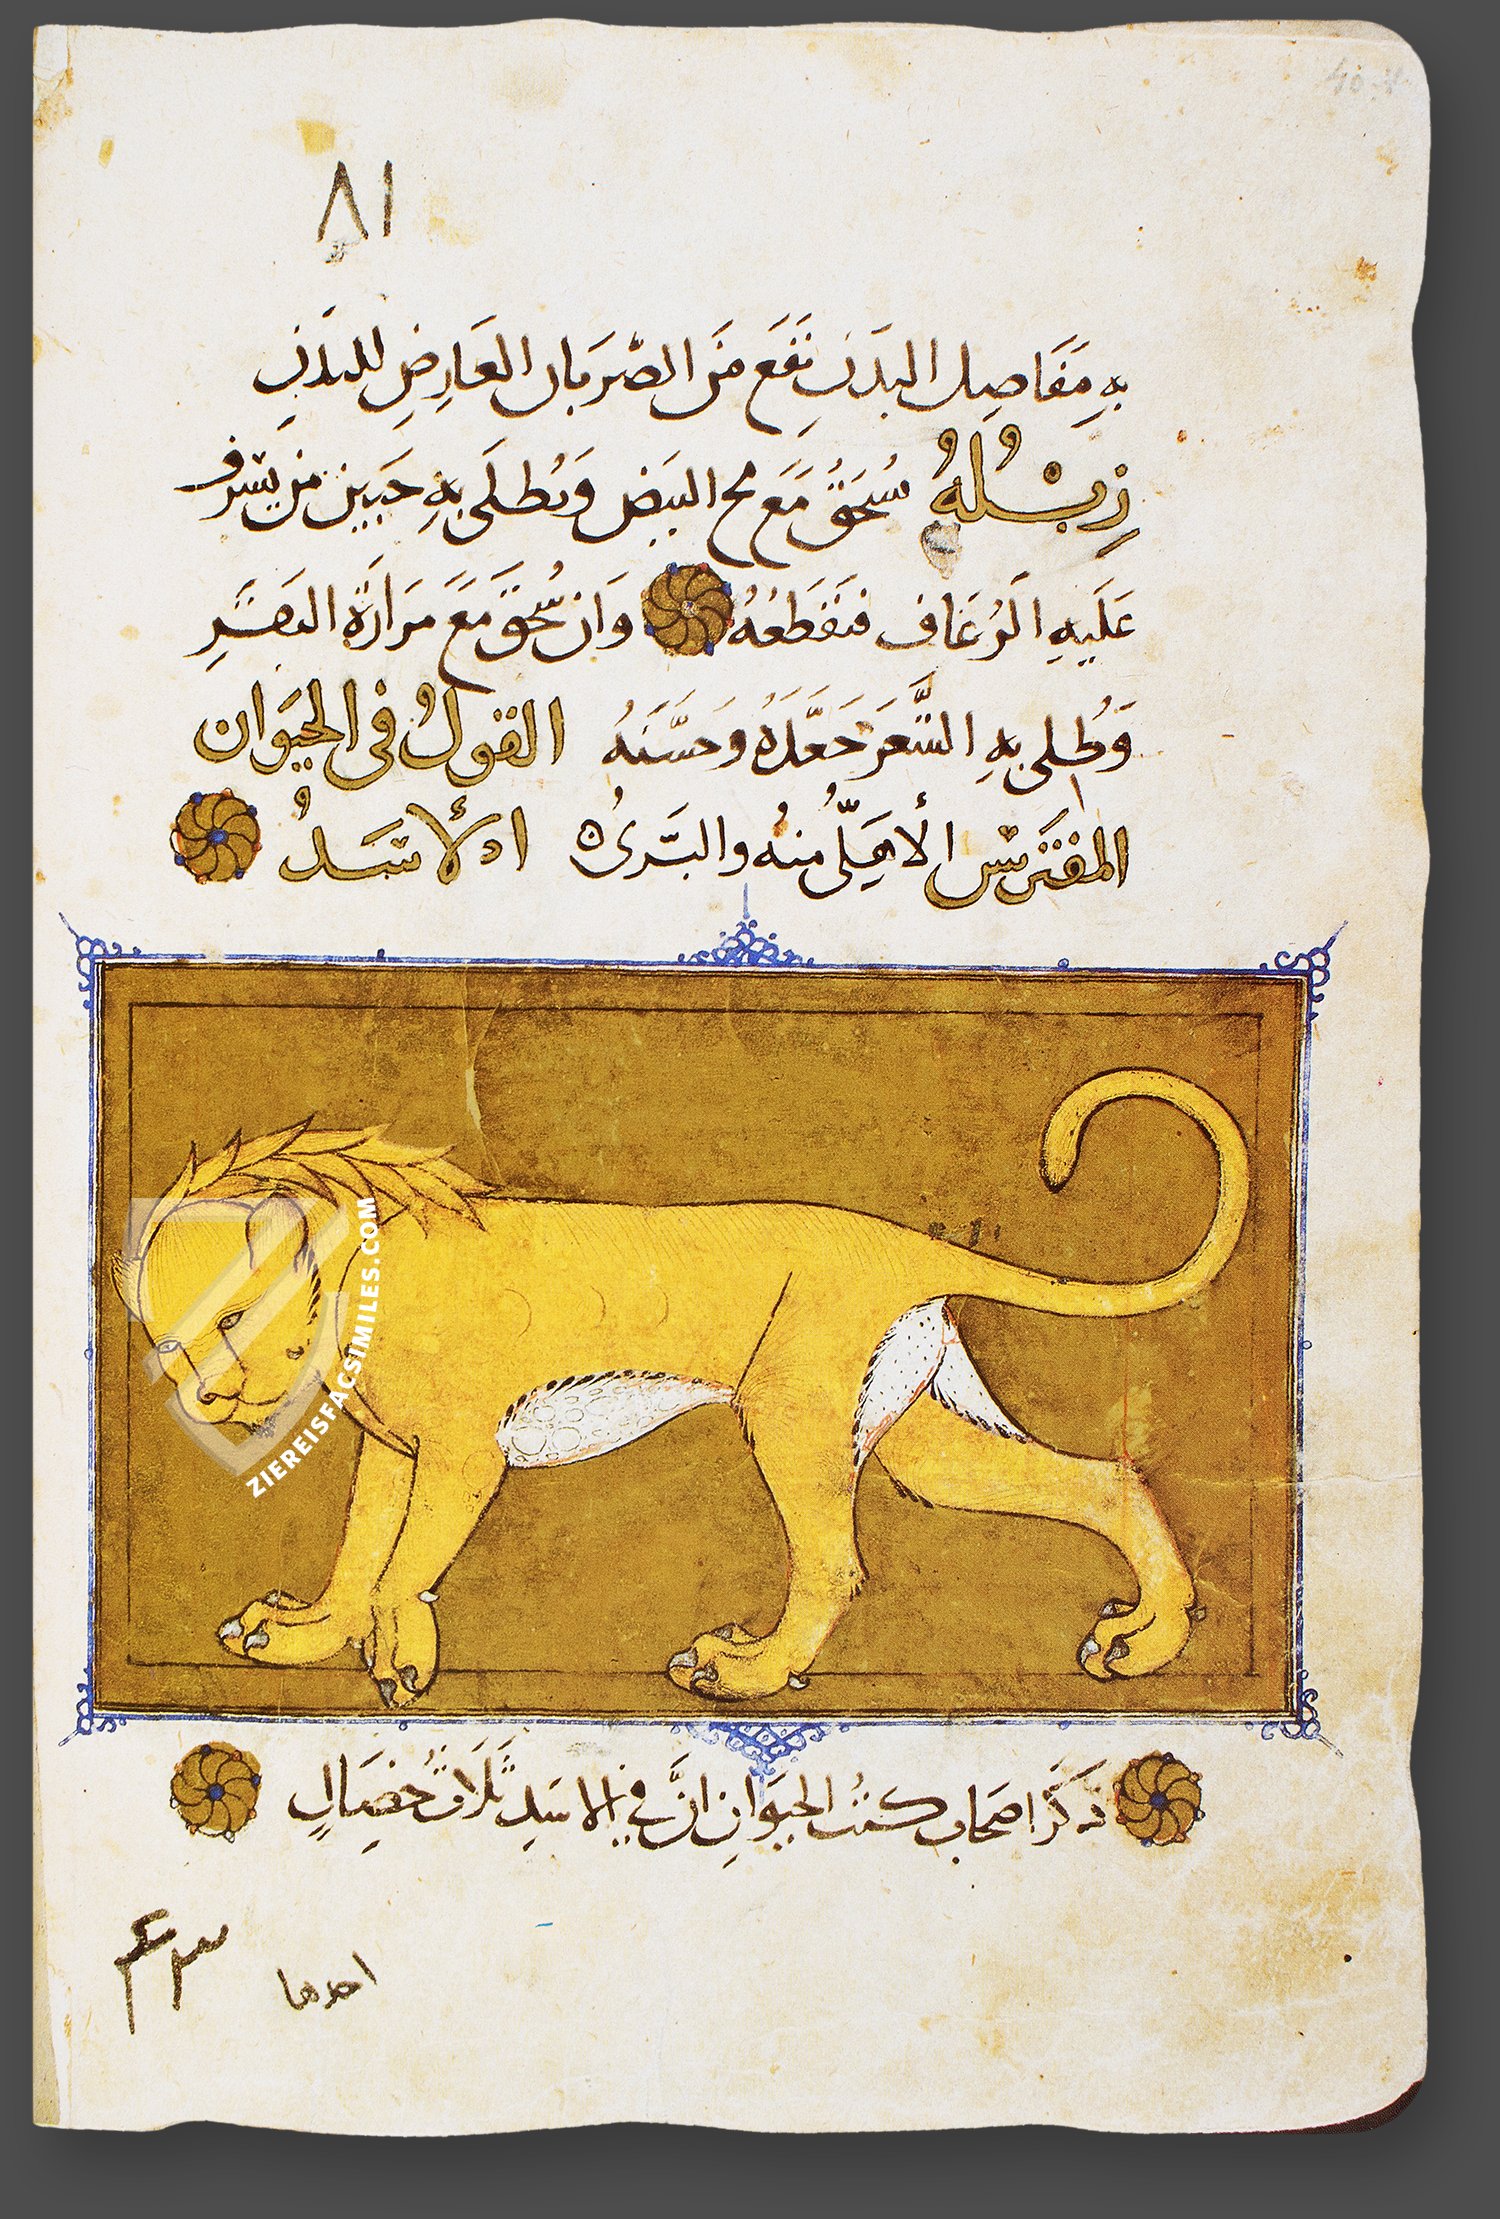 ٨١
بِهِ مَفَاصِل البَدَنِ نَفَعَ مِنَ الضَّرَبان العَارِضِ للبَدَنِ
زِبْلُهُ سُحِقَ مَعَ مح البَيض وَيُطلَى بِهِ جَبين مَن يَسرف
عَلَيهِ الرُعَاف فَيَقطَعُهُ وَان سُحِقَ مَعَ مَرَارَة البَقَرِ
وَطُلى بِهِ الشَّعرَ جَعَّدَهُ وَحَسَّنَهُ القولُ فى الحيَوان
المفتَرس الأهلِىّ منهُ والبَرىُ الأسَدُ
ذكَرَ اصحَاب كتُب الحيَوانِ انَّ فى الاسَدِ ثَلَاثَ خصَالٍ
احدها
٤٣
ZIEREISFACSIMILES.COM